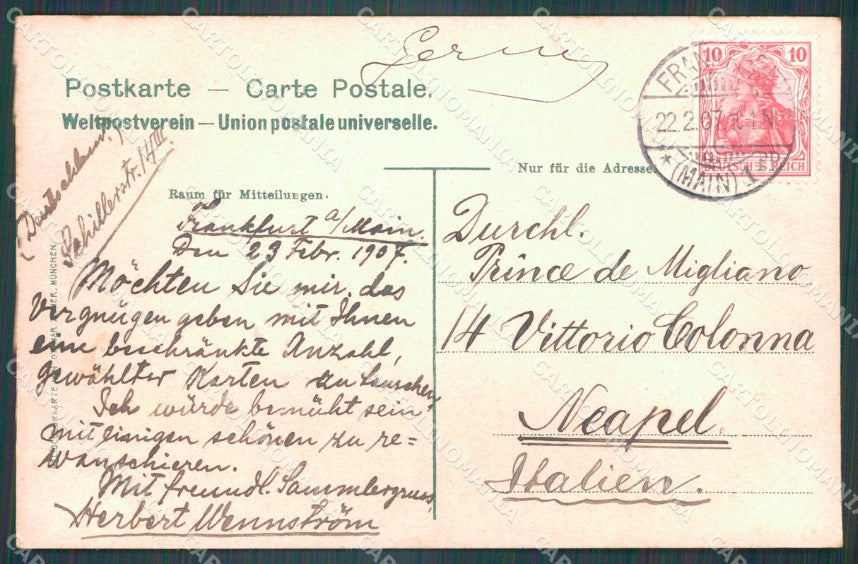 Germ
Postkarte — Carte Postale.
Weltpostverein — Union postale universelle.
10
22.2.07.
(MAIN) 1
Nur für die Adresse.
Raum für Mitteilungen.
(Deutschland.)
Schillerstr. 14 III
Frankfurt a/Main.
Den 23 Febr. 1907.
Möchten Sie mir das
Vergnügen geben mit Ihnen
eine beschränkte Anzahl,
gewählter Karten zu tauschen
Ich würde bemüht sein
mit einigen schönen zu re=
vanschieren.
Mit freundl. Sammlergruss,
Herbert Wennström
Durchl.
Prince de Migliano
14 Vittorio Colonna
Neapel.
Italien.
CARTOLINOMANIA